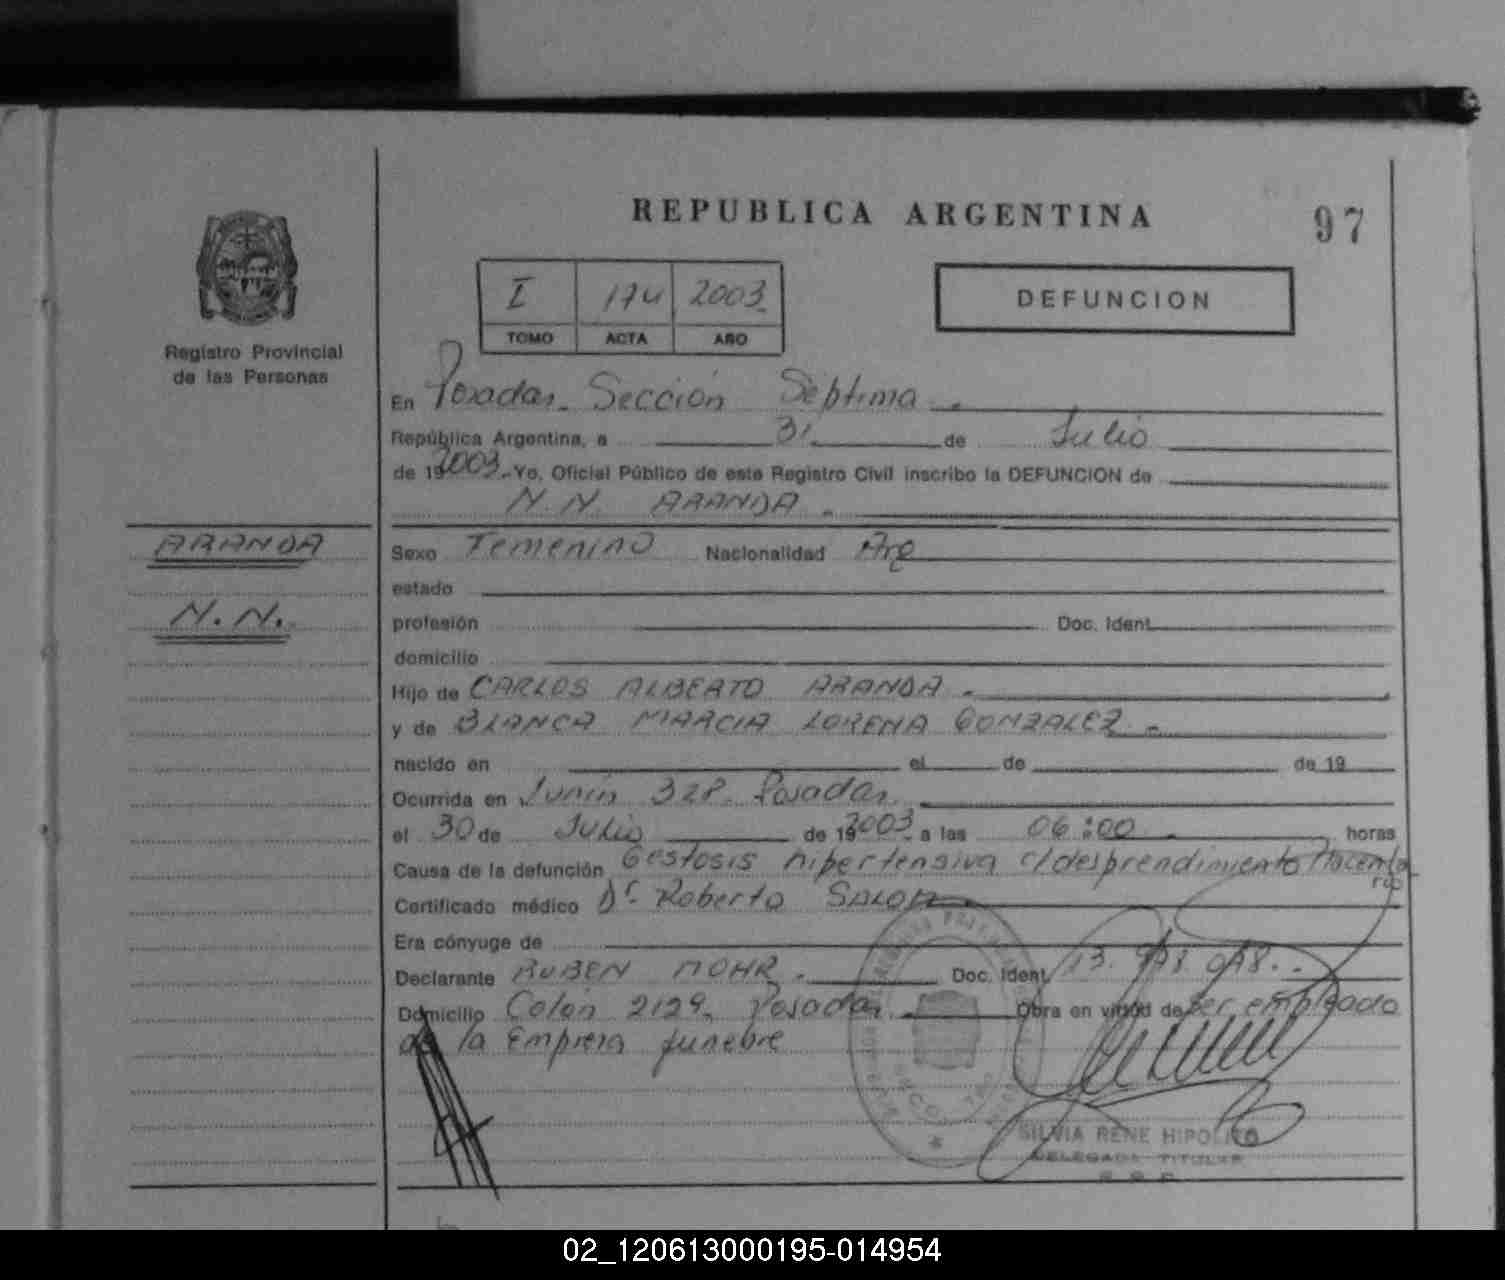 REPUBLICA ARGENTINA
97
I 174 2003
TOMO ACTA AÑO
DEFUNCION
Registro Provincial
de las Personas
En Posadas. Sección Séptima
República Argentina, a 31 de Julio
de 19 2003. Yo, Oficial Público de este Registro Civil inscribo la DEFUNCION de
N.N. ARANDA
ARANDA
N.N.
Sexo Femenino Nacionalidad Arg
estado
profesión Doc. Ident.
domicilio
Hijo de CARLOS ALBERTO ARANDA
y de BLANCA MARCIA LORENA GONZALEZ
nacido en el de de 19
Ocurrida en Junín 328. Posadas
el 30 de Julio de 19 2003 a las 06:00 horas
Causa de la defunción Gestosis hipertensiva c/desprendimiento Placentario
Certificado médico Dr. Roberto
Era cónyuge de
Declarante RUBEN MOHR. Doc. Ident. 13.
Domicilio Colon 2129. Posadas Obra en virtud de ser empleado
de la Empresa funebre
SILVIA RENE HIPOLITO
DELEGADA TITULAR
02_120613000195-014954